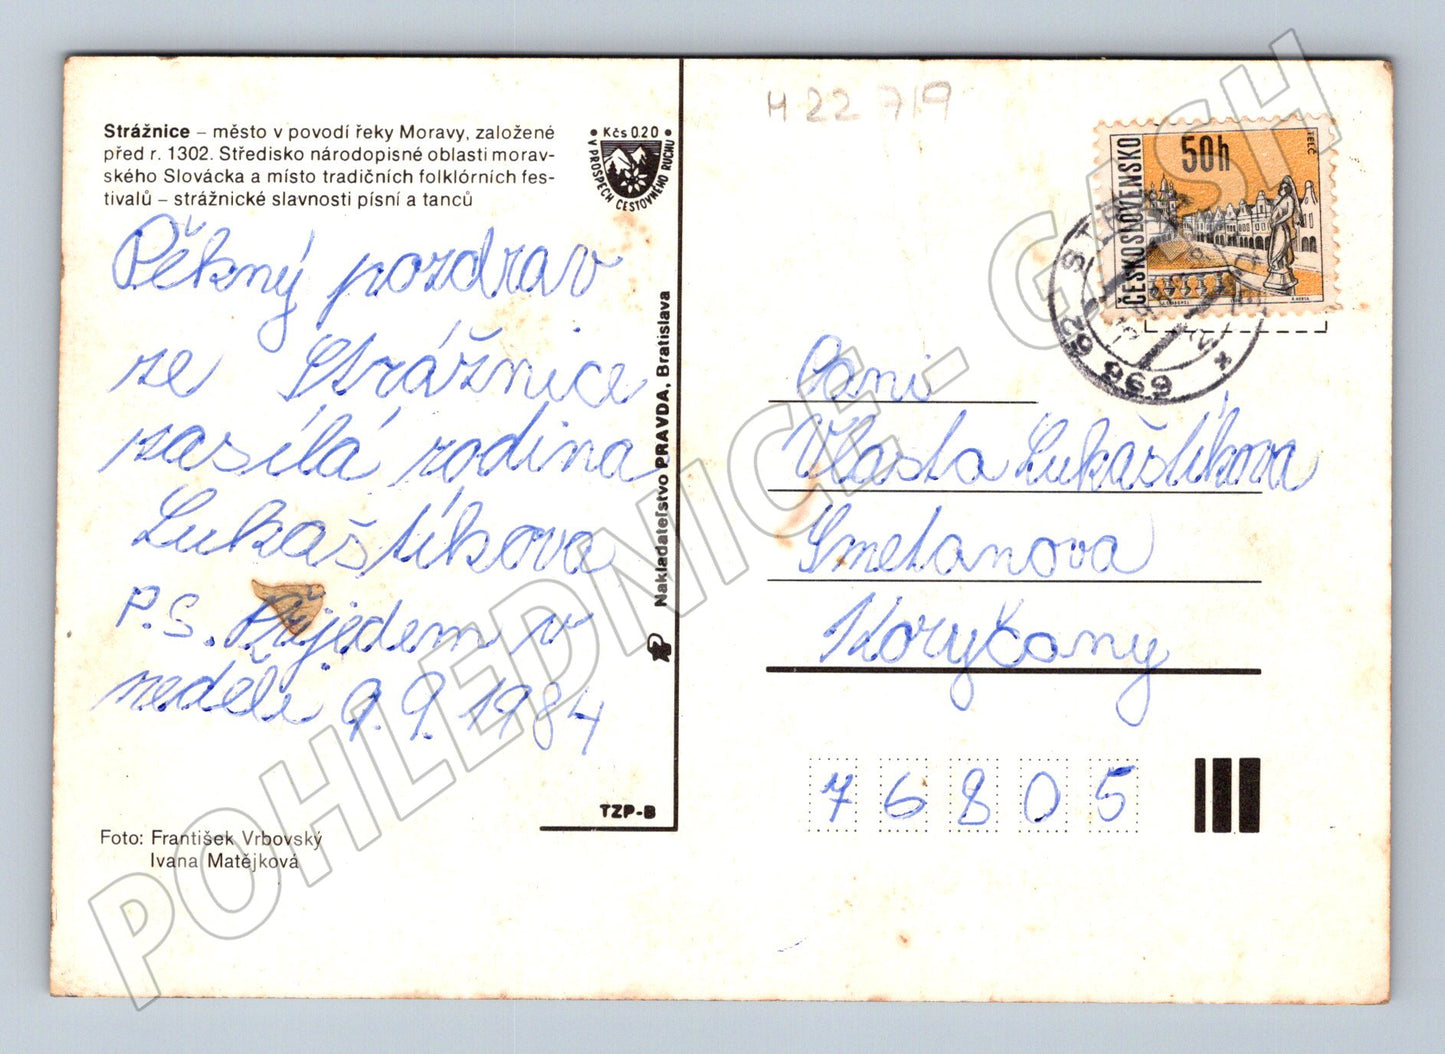 Strážnice – město v povodí řeky Moravy, založené
před r. 1302. Středisko národopisné oblasti morav-
ského Slovácka a místo tradičních folklórních fes-
tivalů – strážnické slavnosti písní a tanců
• Kčs 0.20 •
V PROSPĚCH CESTOVNÉHO RUCHU
Pěkný pozdrav
ze Strážnice
zasílá rodina
Lukaštíkova
P.S. Přijedem v
neděli 9.9.1984
Foto: František Vrbovský
Ivana Matějková
TZP-B
Nakladateľstvo PRAVDA, Bratislava
H 22 719
ČESKOSLOVENSKO
50h
TELČ
696 62 STR
Paní
Vlasta Lukáštíkova
Smetanova
Koryčany
76805
POHLEDNICE - GASH